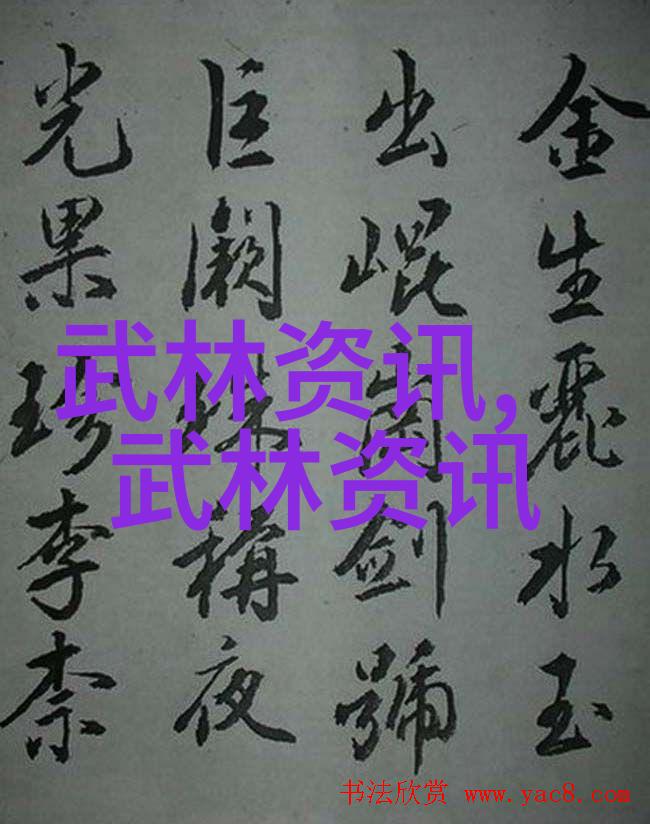 金生麗水玉
出崐崗劍號
巨闕珠稱夜
光果珍李柰
武林资讯,
武林资讯
书法欣赏 www.yac8.com